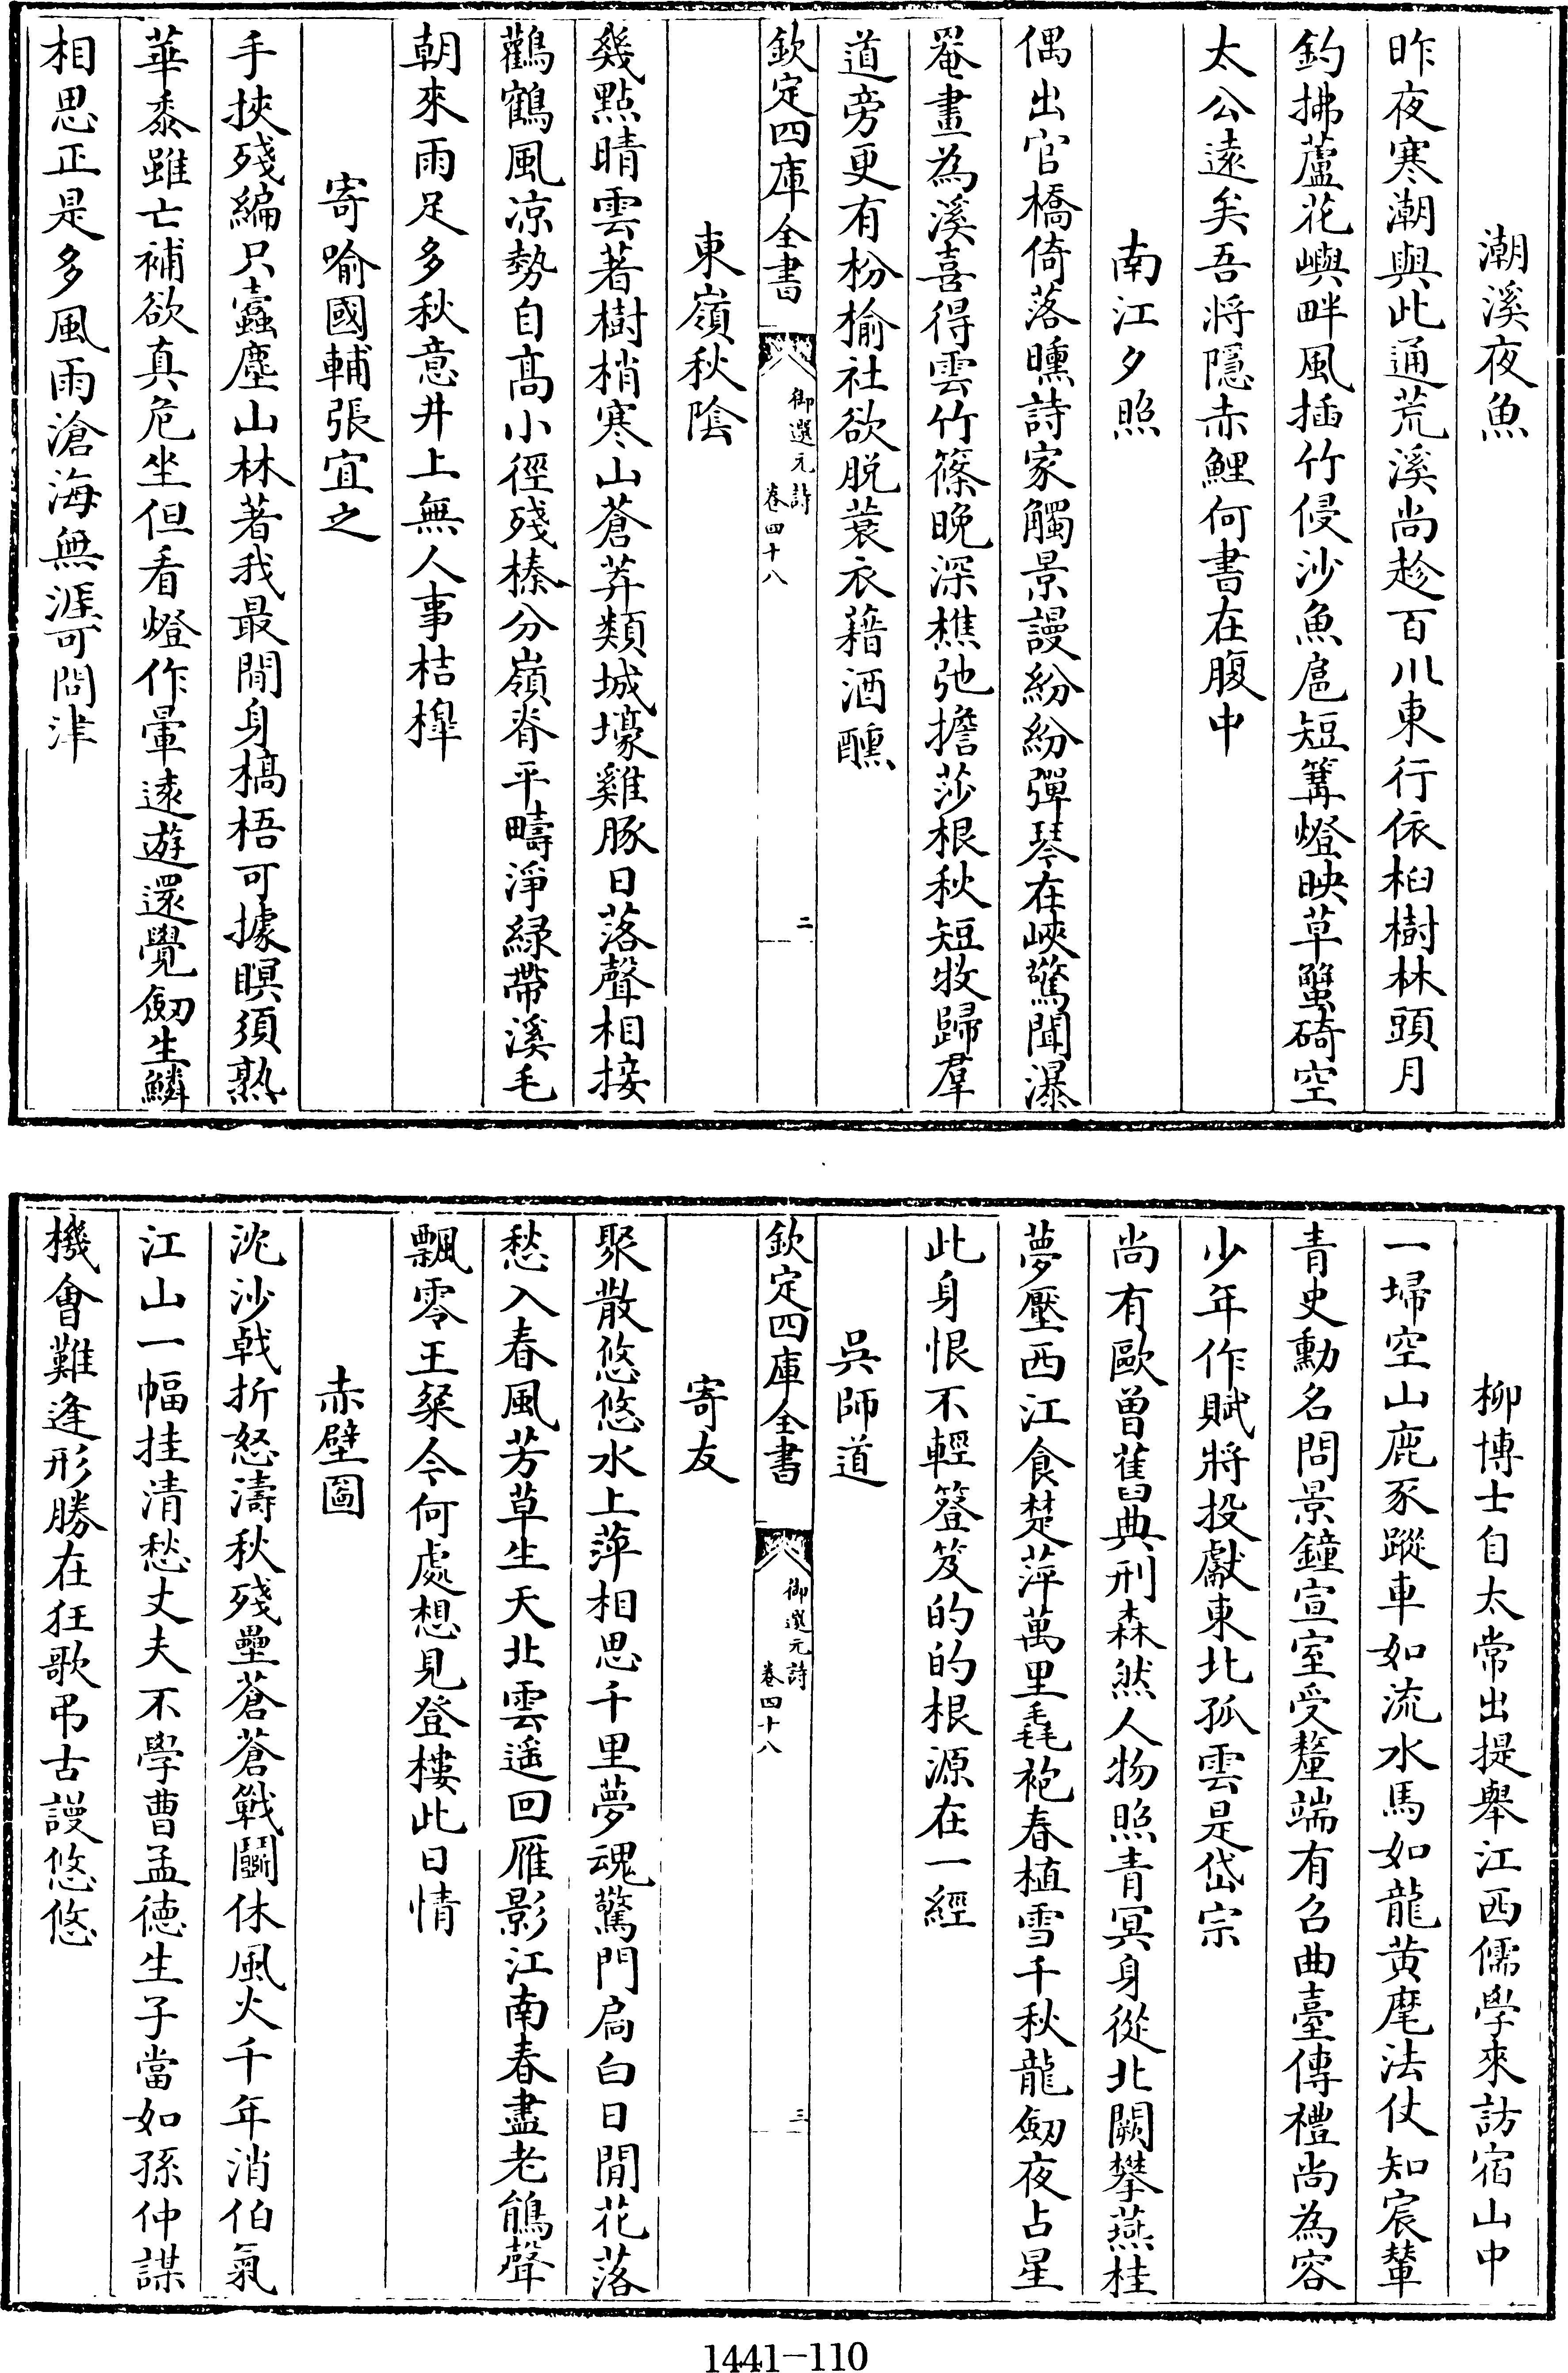 潮溪夜魚
昨夜寒潮與此通荒溪尚趁百川東行依桕樹林頭月
釣拂蘆花嶼畔風插竹侵沙魚扈短篝燈映草蟹碕空
太公遠矣吾將隱赤鯉何書在腹中
南江夕照
偶出官橋倚落曛詩家觸景謾紛紛彈琴在峽驚聞瀑
罨畫為溪喜得雲竹篠晚深樵弛擔莎根秋短牧歸羣
道旁更有枌榆社欲脱蓑衣藉酒醺
欽定四庫全書
御選元詩
卷四十八
二
東嶺秋陰
幾點晴雲著樹梢寒山蒼莽類城壕雞豚日落聲相接
鸛鶴風凉勢自高小徑殘榛分嶺脊平疇淨緑帶溪毛
朝來雨足多秋意井上無人事桔橰
寄喻國輔張宜之
手挾殘編只蠧塵山林著我最閒身槁梧可據瞑須熟
華黍雖亡補欲真危坐但看燈作暈遠遊還覺劒生鱗
相思正是多風雨滄海無涯可問津
柳博士自太常出提舉江西儒學來訪宿山中
一埽空山鹿豕蹤車如流水馬如龍黄麾法仗知宸輦
青史勳名問景鐘宣室受釐端有召曲臺傳禮尚為容
少年作賦將投獻東北孤雲是岱宗
尚有歐曾舊典刑森然人物照青冥身從北闕攀燕桂
夢壓西江食楚萍萬里毳袍春植雪千秋龍劒夜占星
此身恨不輕簦笈的的根源在一經
吳師道
欽定四庫全書
御選元詩
卷四十八
三
寄友
聚散悠悠水上萍相思千里夢魂驚門扃白日閒花落
愁入春風芳草生天北雲遥回雁影江南春盡老鵑聲
飄零王粲今何處想見登樓此日情
赤壁圖
沈沙戟折怒濤秋殘壘蒼蒼戰鬬休風火千年消伯氣
江山一幅挂清愁丈夫不學曹孟德生子當如孫仲謀
機會難逢形勝在狂歌弔古謾悠悠
1441-110